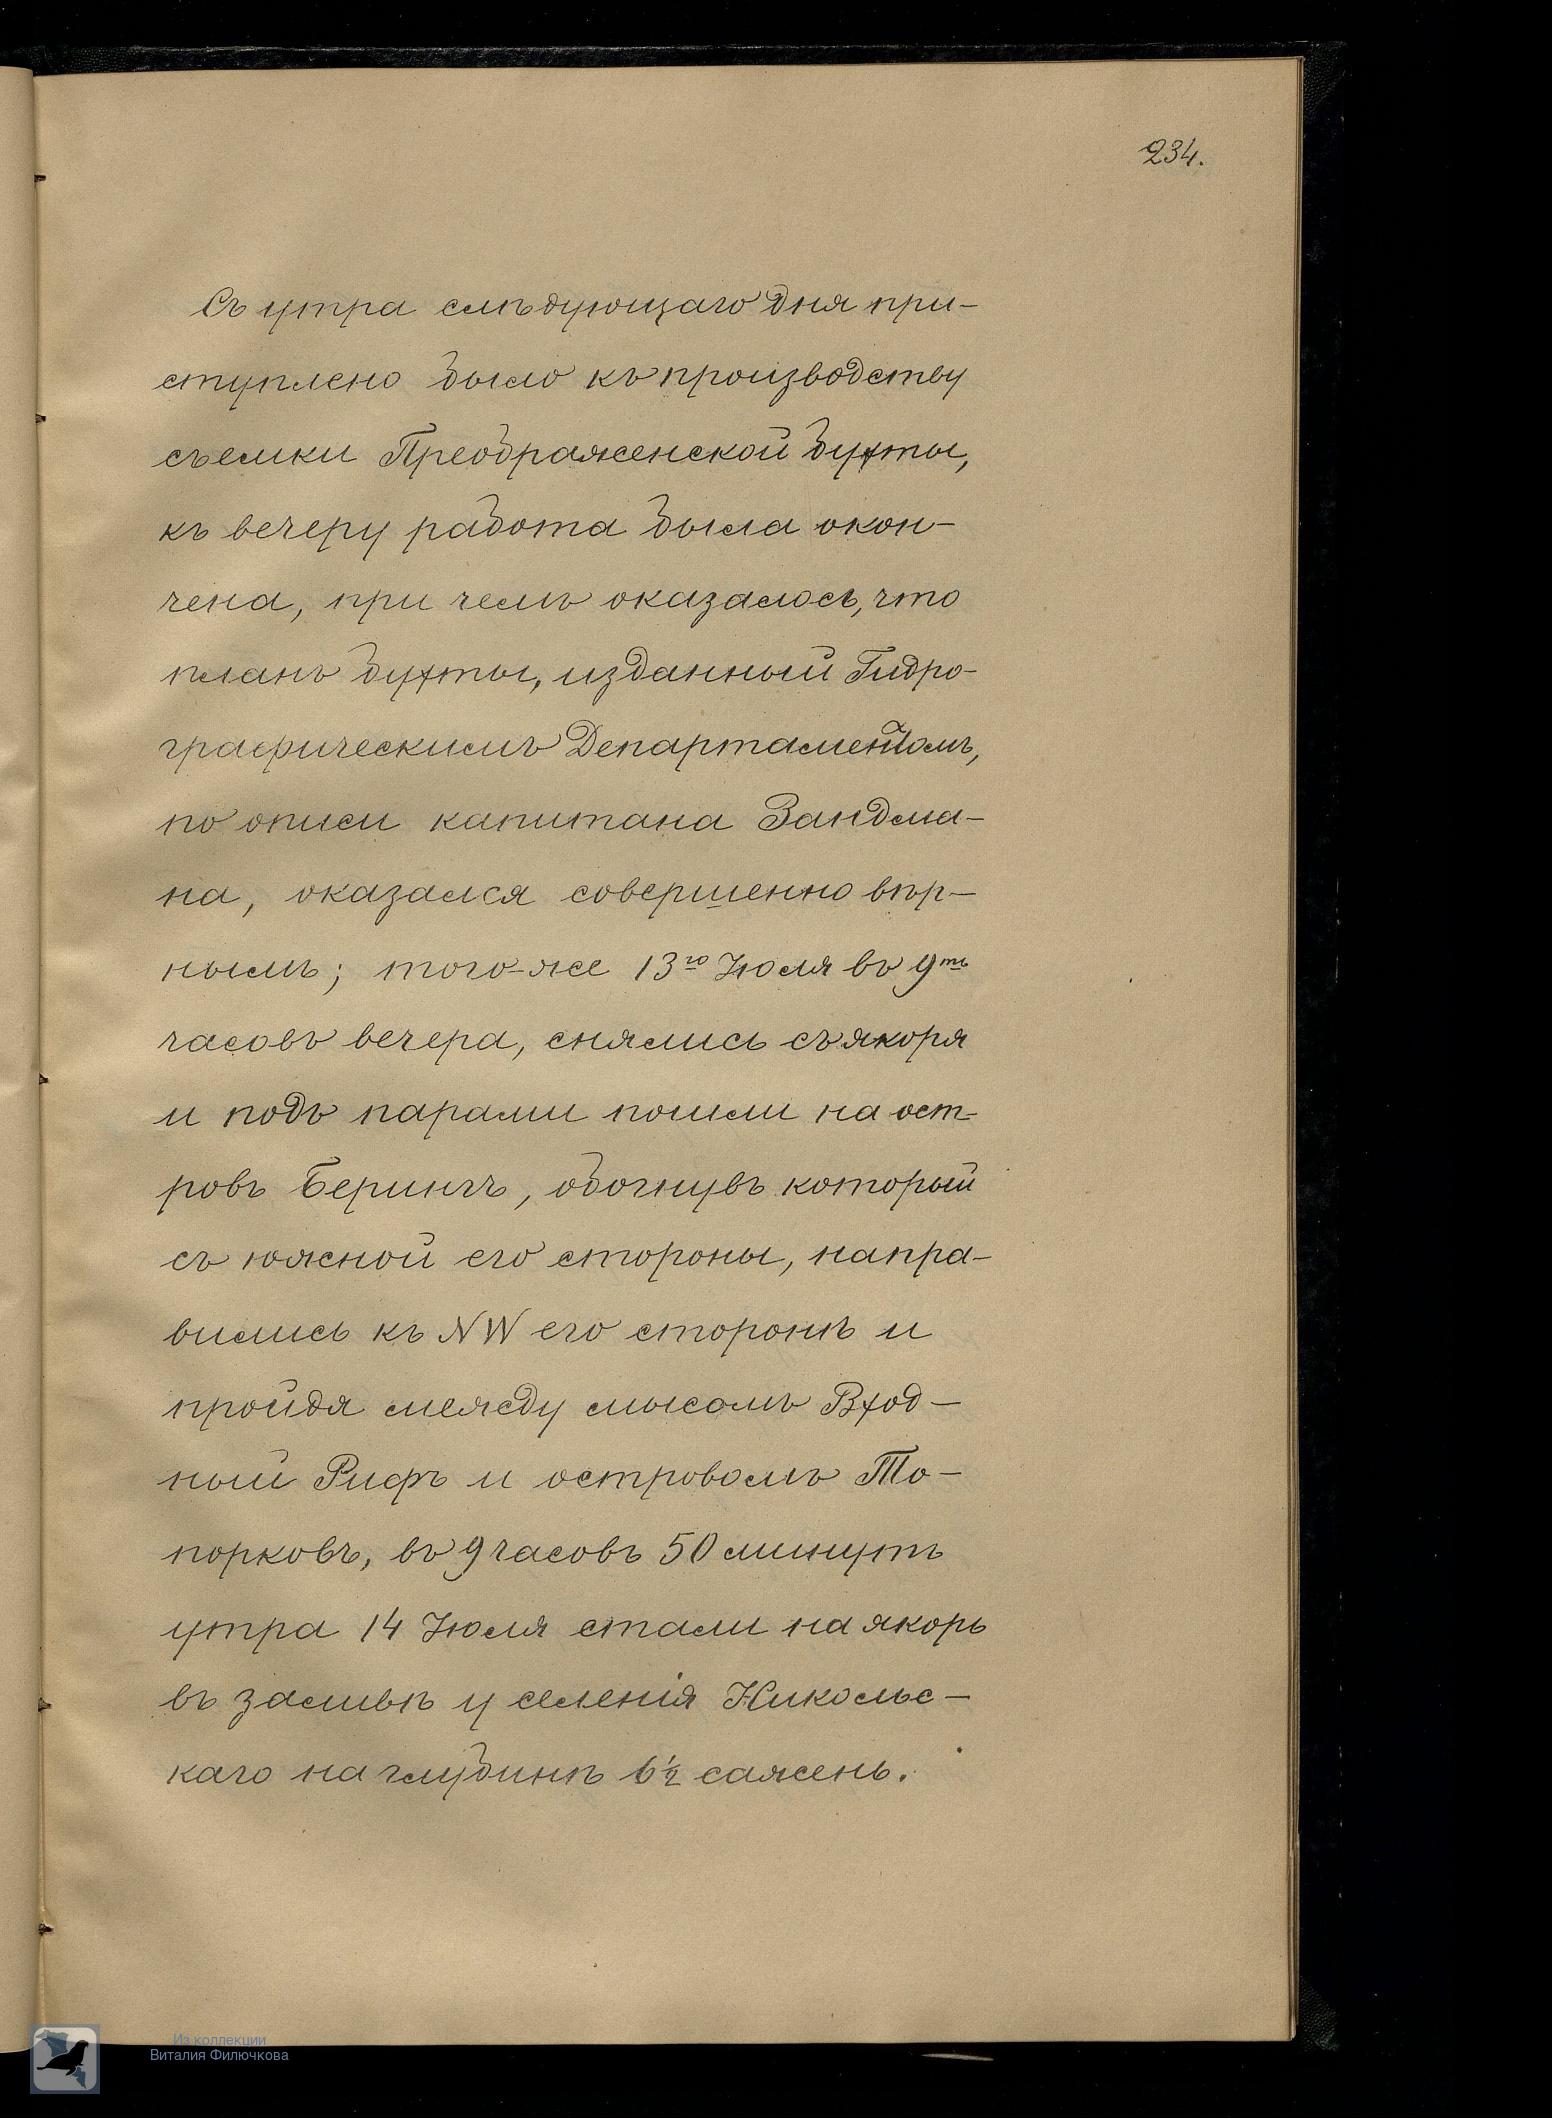 234.
Съ утра слѣдующаго дня при-
ступлено было къ производству
съемки Преображенской бухты,
къ вечеру работа была окон-
чена, при чемъ оказалось, что
планъ бухты, изданный Гидро-
графическимъ Департаментомъ,
по описи капитана Зандма-
на, оказался совершенно вѣр-
нымъ; того-же 13го Июля въ 9ть
часовъ вечера, снялись съ якоря
и подъ парами пошли на ост-
ровъ Берингъ, обогнувъ который
съ южной его стороны, напра-
вились къ NW его сторонѣ и
пройдя между мысомъ Вход-
ный Рифъ и островомъ То-
порковъ, въ 9 часовъ 50 минутъ
утра 14 Июля стали на якорь
въ заливѣ у селенія Никольс-
каго на глубинѣ 6½ сажень.
Из коллекции
Виталия Филючкова